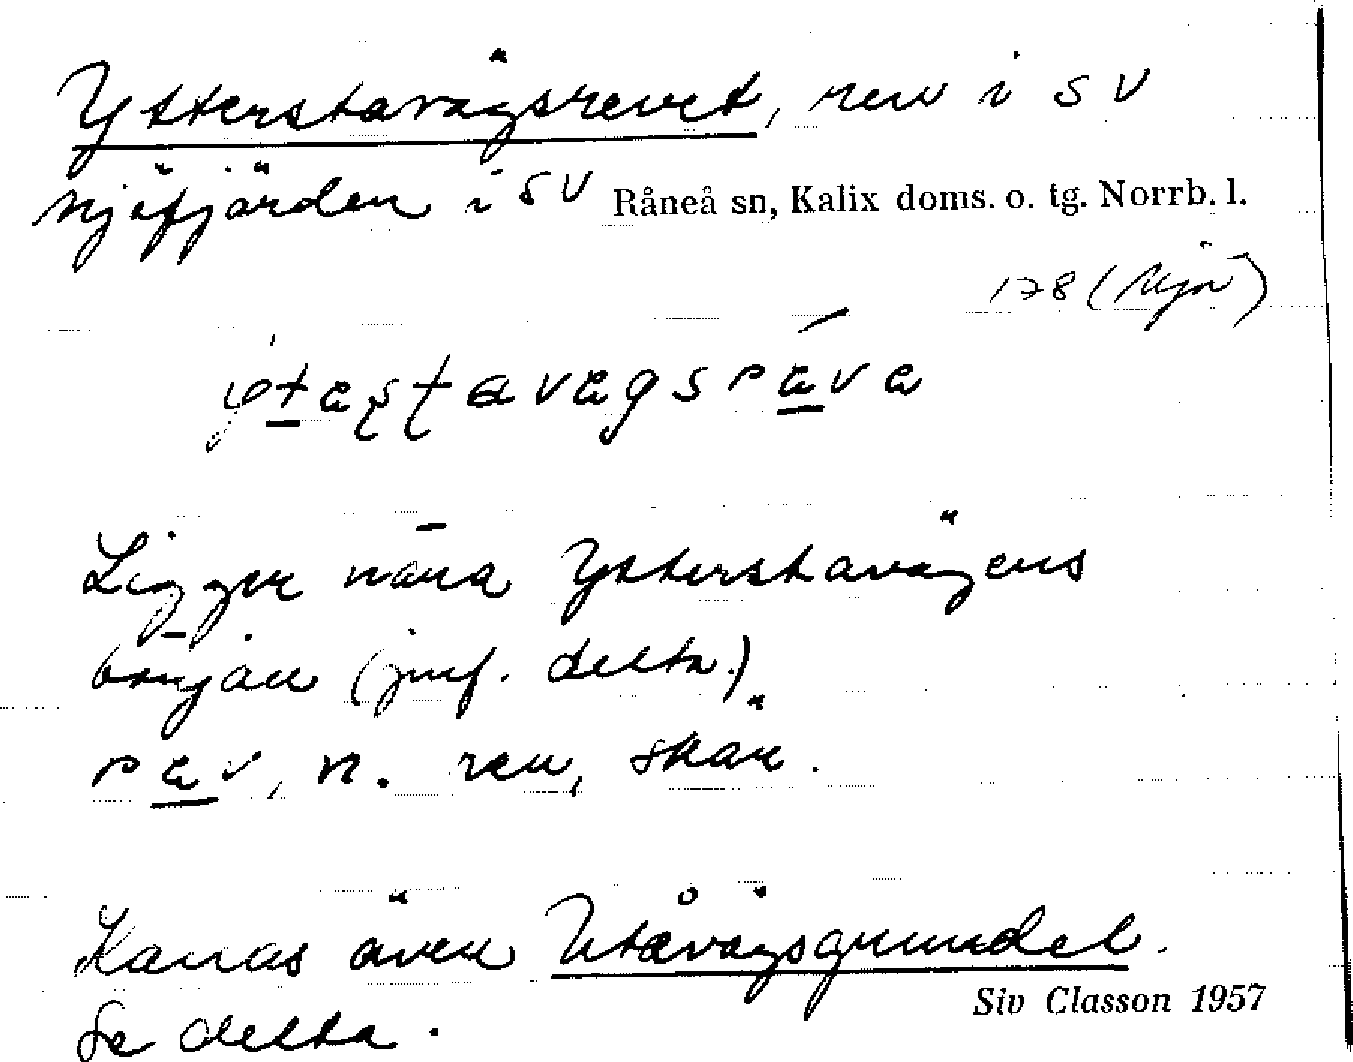 Ytterstavägsrevet, rev i SV
Mjöfjärden i SV Råneå sn, Kalix doms. o. tg. Norrb. l.
178 (Mjö)
Ligger nära Ytterstavägens
början (jmf. detta.)
n. rev, skär.
Kallas även Utåvägsgrundet.
Siv Classon 1957
Se detta.